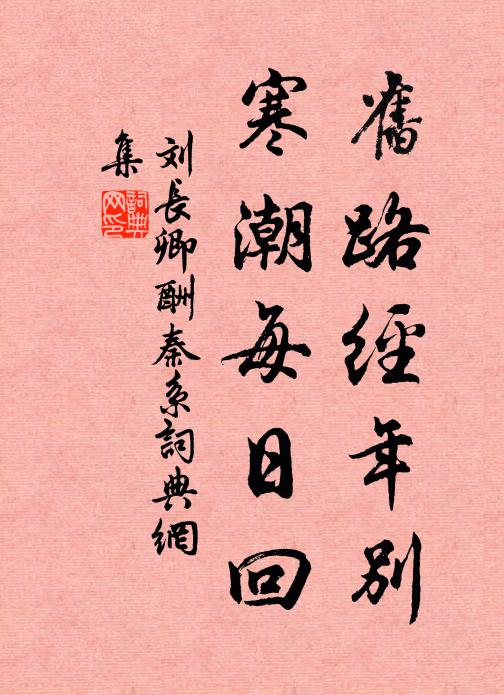 舊路經年別
寒潮每日回
刘長卿酬秦系詞典網
集
詞典网印